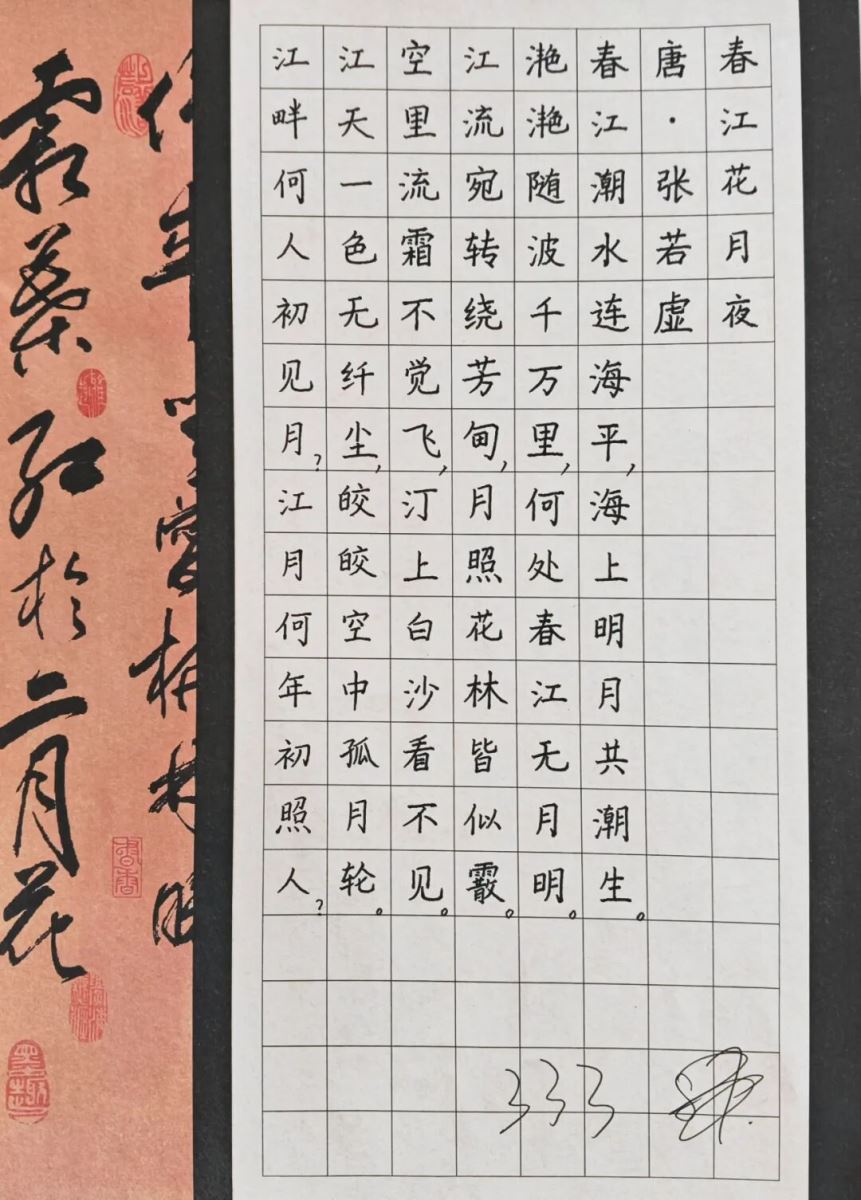 春江花月夜
唐·张若虚
春江潮水连海平,海上明月共潮生。
滟滟随波千万里,何处春江无月明。
江流宛转绕芳甸,月照花林皆似霰。
空里流霜不觉飞,汀上白沙看不见。
江天一色无纤尘,皎皎空中孤月轮。
江畔何人初见月?江月何年初照人?
333
霜葉紅於二月花